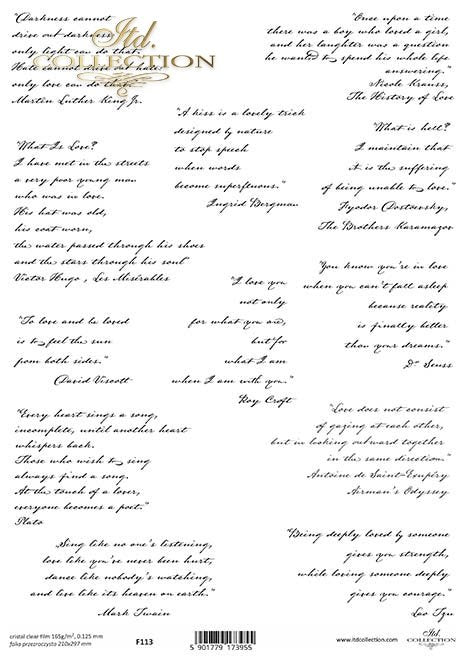 "Darkness cannot
drive out darkness;
only light can do that.
Hate cannot drive out hate;
only love can do that."
Martin Luther King Jr.
Itd.
COLLECTION
"Once upon a time
there was a boy who loved a girl,
and her laughter was a question
he wanted to spend his whole life
answering."
Nicole Krauss,
The History of Love
"A kiss is a lovely trick
designed by nature
to stop speech
when words
become superfluous."
Ingrid Bergman
"What is hell?
I maintain that
it is the suffering
of being unable to love."
Fyodor Dostoevsky,
The Brothers Karamazov
"What Is Love?
I have met in the streets
a very poor young man
who was in love.
His hat was old,
his coat worn,
the water passed through his shoes
and the stars through his soul"
Victor Hugo , Les Misérables
"You know you're in love
when you can't fall asleep
because reality
is finally better
than your dreams."
Dr Seuss
"I love you
not only
for what you are,
but for
what I am
when I am with you."
Roy Croft
"To love and be loved
is to feel the sun
from both sides."
David Viscott
"Every heart sings a song,
incomplete, until another heart
whispers back.
Those who wish to sing
always find a song.
At the touch of a lover,
everyone becomes a poet."
Plato
"Love does not consist
of gazing at each other,
but in looking outward together
in the same direction."
Antoine de Saint-Exupéry
Airman's Odyssey
Sing like no one's listening,
love like you've never been hurt,
dance like nobody's watching,
and live like its heaven on earth."
Mark Twain
"Being deeply loved by someone
gives you strength,
while loving someone deeply
gives you courage."
Lao Tzu
cristal clear film 165g/m², 0.125 mm
folia przezroczysta 210x297 mm
F113
5 901779 173955
www.itdcollection.com
Itd.
COLLECTION